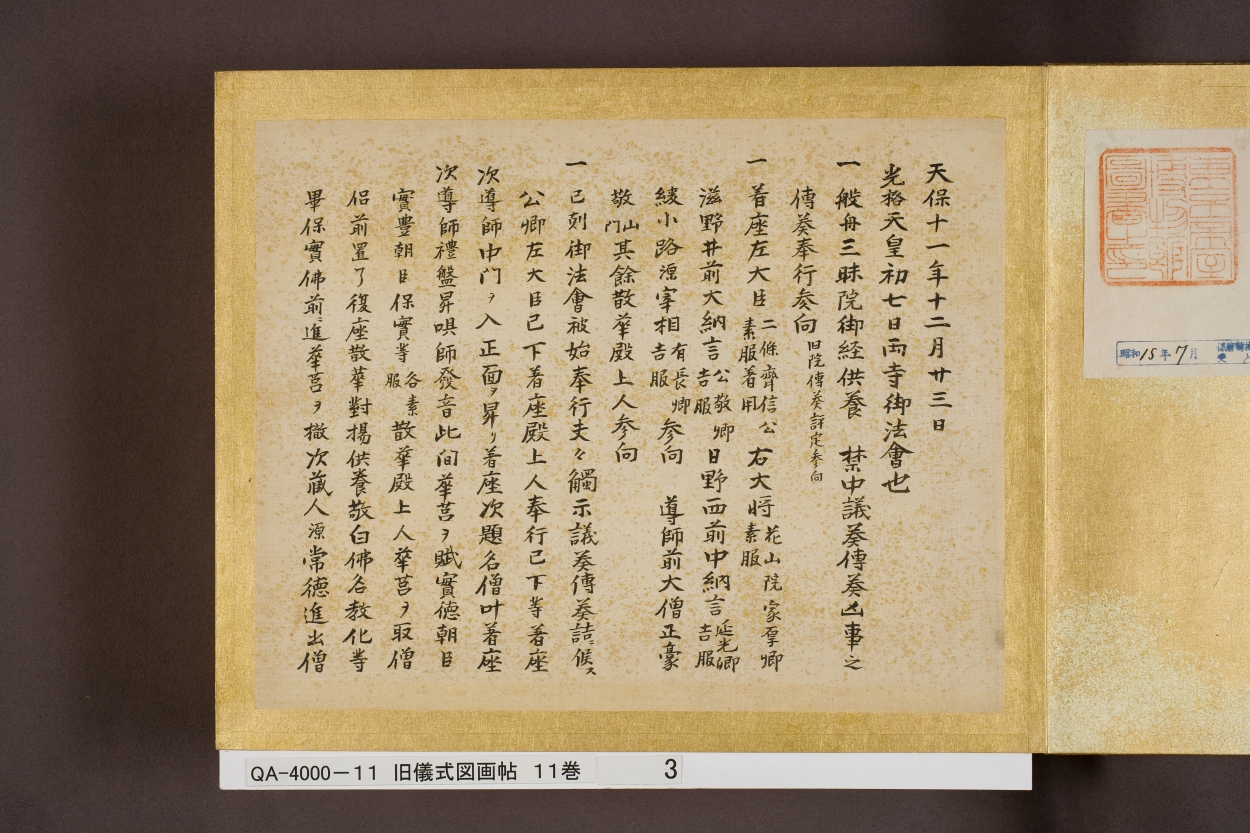 天保十一年十二月廿三日
光格天皇初七日両寺御法會也
一 般舟三昧院御経供養 禁中議奏傳奏凶事之
傳奏奉行参向 旧院傳奏評定参向
一 着座左大臣 二條齊信公 素服着用 右大将 花山院家厚卿 素服
滋野井前大納言 公敬卿 吉服 日野西前中納言 延光卿 吉服
綾小路源宰相 有長卿 吉服 参向 導師前大僧正豪
敬 山門 其餘散華殿上人参向
一 已刻御法會被始奉行夫々觸示議奏傳奏詰ニ候ス
公卿左大臣已下着座殿上人奉行已下等着座
次導師中門ヲ入正面ヲ昇リ着座次題名僧叶着座
次導師禮盤昇唄師發音此間華筥ヲ賦實德朝臣
實豊朝臣保實等 各素服 散華殿上人華筥ヲ取僧
侶前置了復座散華對揚供養敬白佛名教化等
畢保實佛前ニ進華筥ヲ撤次蔵人源常德進出僧
昭和15年7月
QA-4000-11 旧儀式図画帖 11巻 3